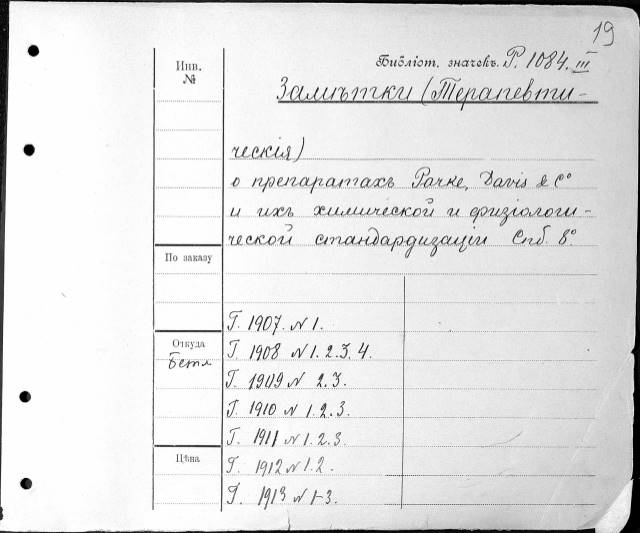 19
Инв. №
Библіот. значекъ. P. 1084. III
Замѣтки (Терапевти-
ческія)
о препаратахъ Parke, Davis & Cº
и ихъ химической и физіологи-
ческой стандардизаціи Спб. 8º.
По заказу
Г. 1907. N 1.
Откуда
Г. 1908 N 1. 2. 3. 4.
Г. 1909 N 2. 3.
Г. 1910 N 1. 2. 3.
Г. 1911 N 1. 2. 3.
Цѣна
Г. 1912 N 1. 2.
Г. 1913 N 1-3.